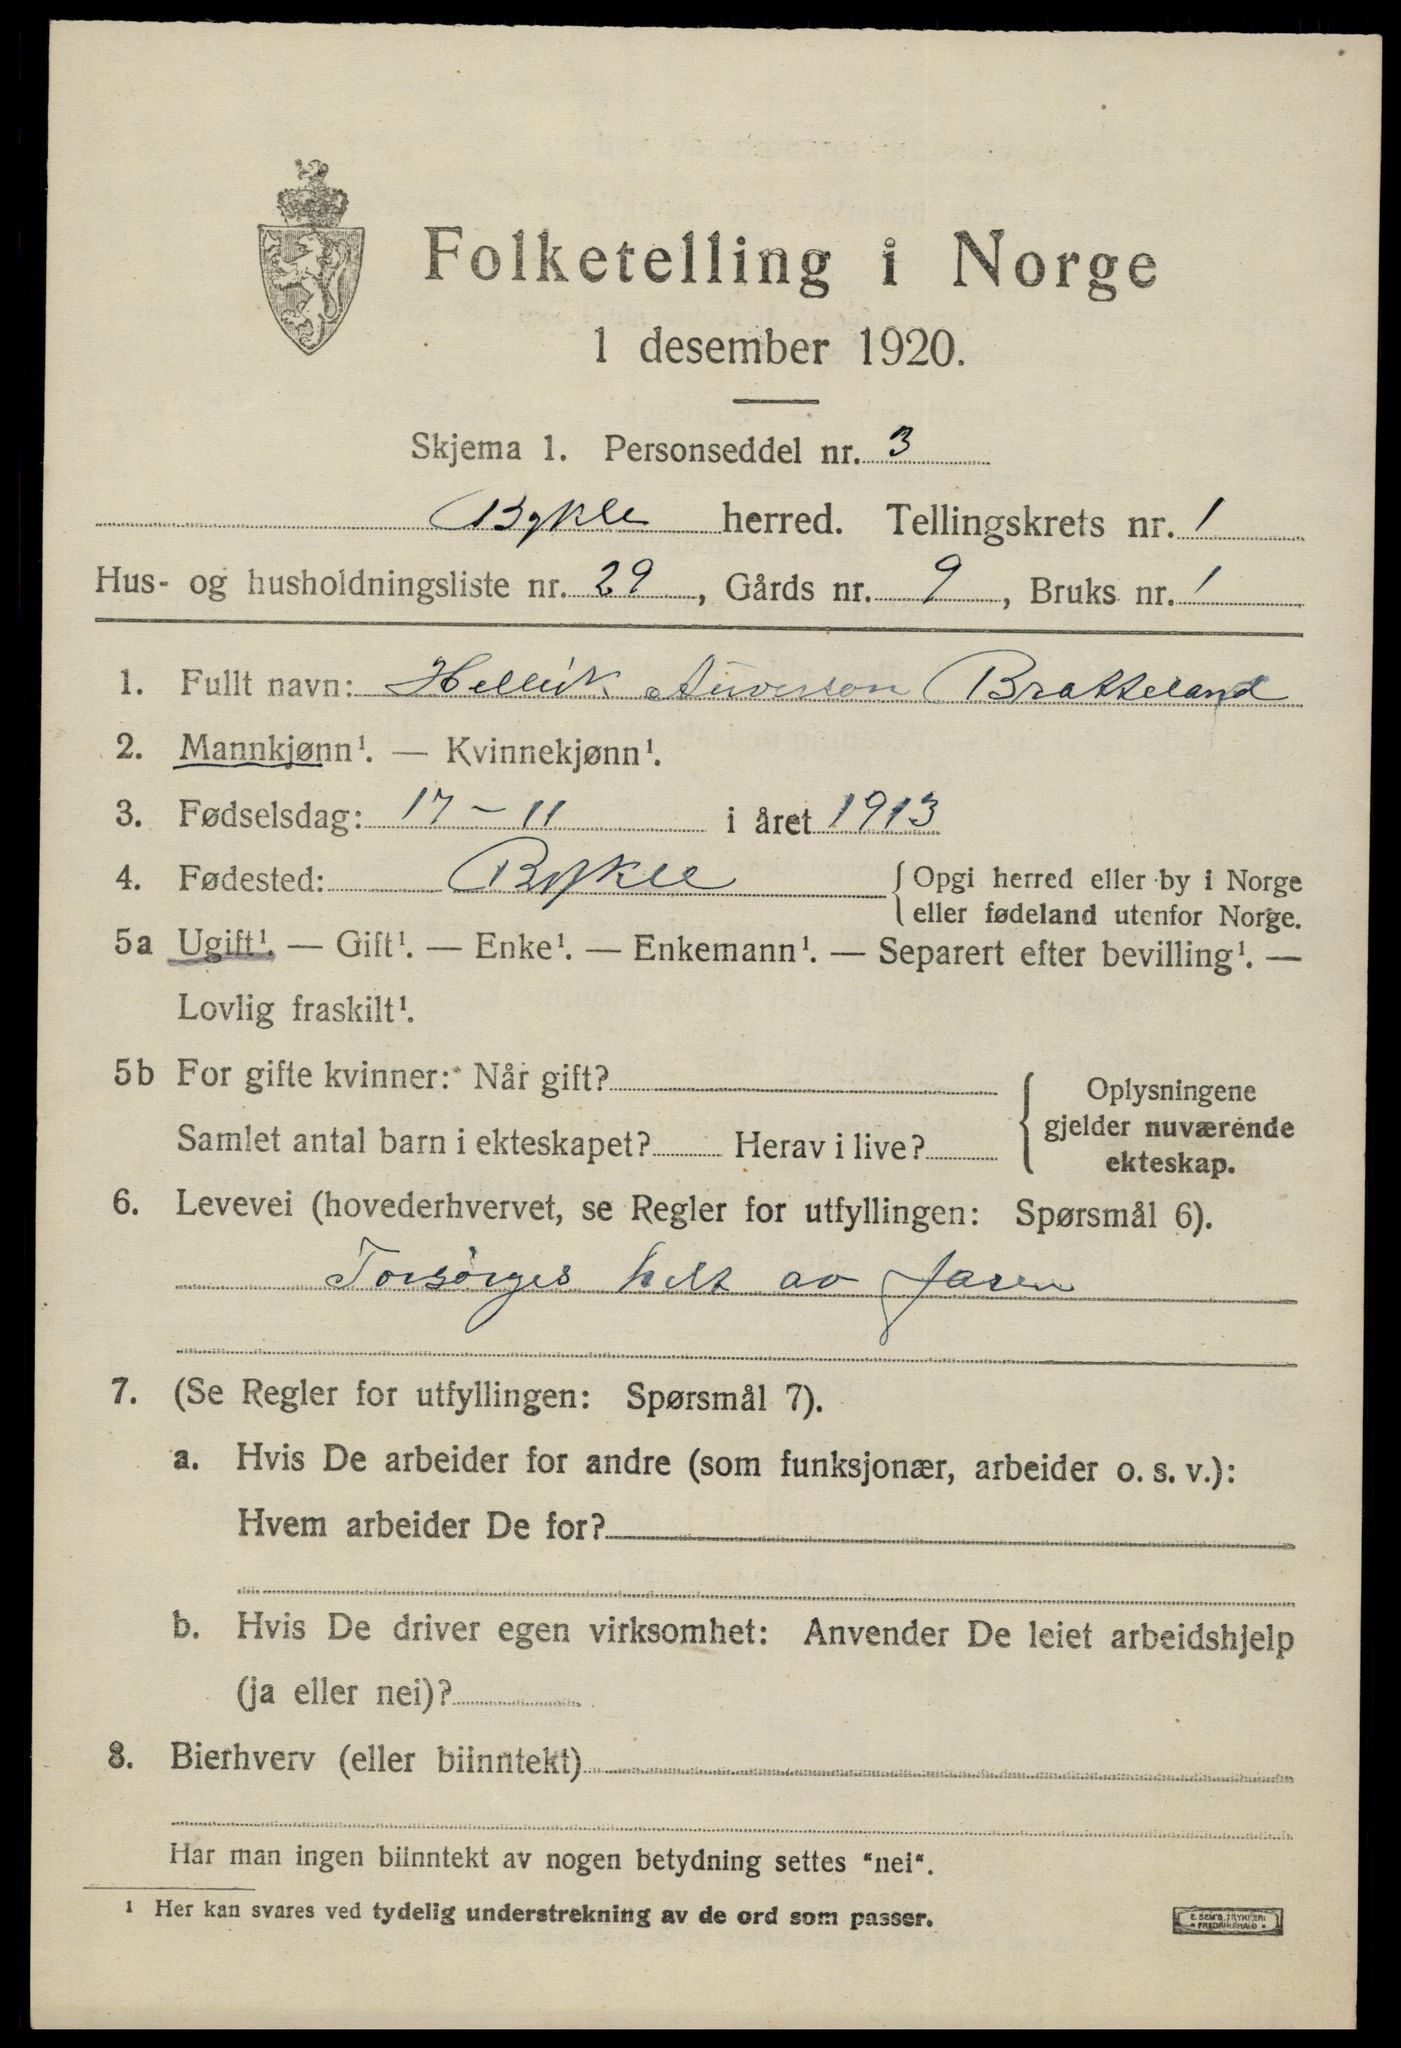 Folketelling i Norge
1 desember 1920.
Skjema 1. Personseddel nr. 3
Bykle herred. Tellingskrets nr. 1
Hus- og husholdningsliste nr. 29, Gårds nr. 9, Bruks nr. 1
1. Fullt navn: Hellik Bratteland
2. Mannkjønn¹. — Kvinnekjønn¹.
3. Fødselsdag: 17 - 11 i året 1913
4. Fødested: Bykle { Opgi herred eller by i Norge
eller fødeland utenfor Norge.
5a Ugift¹. — Gift¹. — Enke¹. — Enkemann¹. — Separert efter bevilling¹. —
Lovlig fraskilt¹.
5b For gifte kvinner: Når gift?
Samlet antal barn i ekteskapet? Herav i live?
{ Oplysningene
gjelder nuværende
ekteskap.
6. Levevei (hovederhvervet, se Regler for utfyllingen: Spørsmål 6).
Forsörges helt av faren
7. (Se Regler for utfyllingen: Spørsmål 7).
a. Hvis De arbeider for andre (som funksjonær, arbeider o. s. v.):
Hvem arbeider De for?
b. Hvis De driver egen virksomhet: Anvender De leiet arbeidshjelp
(ja eller nei)?
8. Bierhverv (eller biinntekt)
Har man ingen biinntekt av nogen betydning settes "nei".
1 Her kan svares ved tydelig understrekning av de ord som passer.
E. SEM'S TRYKKERI
* FREDRIKSHALD *